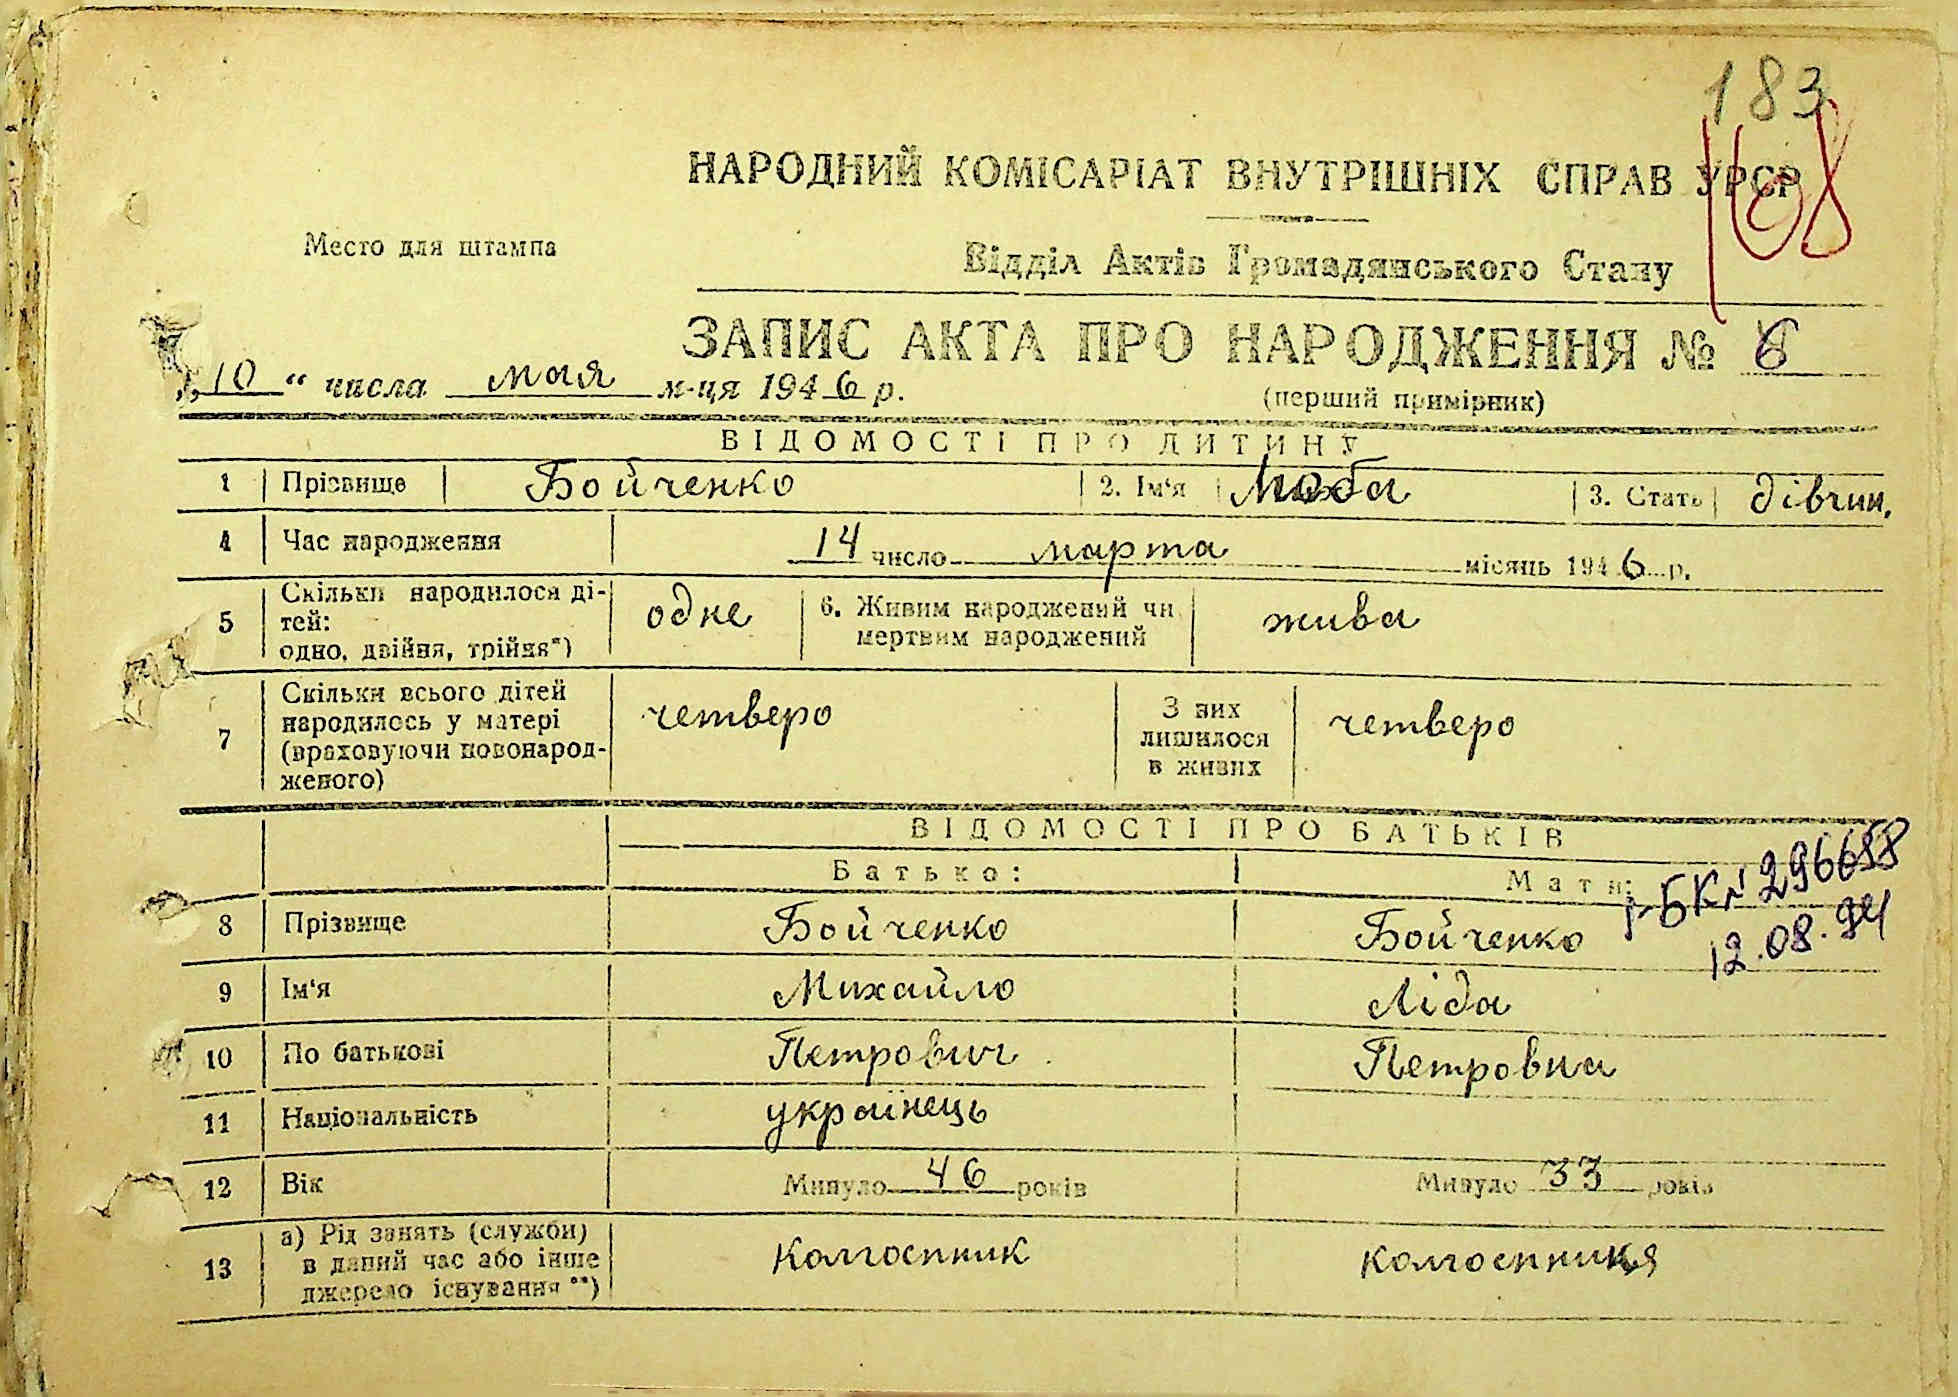 183
168
НАРОДНИЙ КОМІСАРІАТ ВНУТРІШНІХ СПРАВ УРСР
Место для штампа
Відділ Актів Громадянського Стану
ЗАПИС АКТА ПРО НАРОДЖЕННЯ № 6
„10“ числа мая м-ця 1946 р.
(перший примірник)
ВІДОМОСТІ ПРО ДИТИНУ
1 Прізвище Бойченко 2. Ім‘я 3. Стать дівчин.
4 Час народження 14 число марта місяць 1946 р.
5 Скільки народилося ді-
тей:
одно, двійня, трійня*) одне 6. Живим народжений чи
мертвим народжений жива
7 Скільки всього дітей
народилось у матері
(враховуючи новонарод-
женого) четверо З них
лишилося
в живих четверо
ВІДОМОСТІ ПРО БАТЬКІВ
Батько: Мати:
І-БК № 296658
12.08.94
8 Прізвище Бойченко Бойченко
9 Ім‘я Михайло Ліда
10 По батькові Петрович Петровна
11 Національність українець
12 Вік Минуло 46 років Минуло 33 років
13 а) Рід занять (служби)
в даний час або інше
джерело існування **) Колгоспник колгоспниця